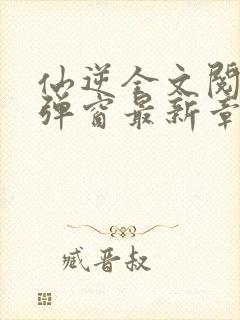 仙逆全文阅
弹窗最新章
臧晋叔